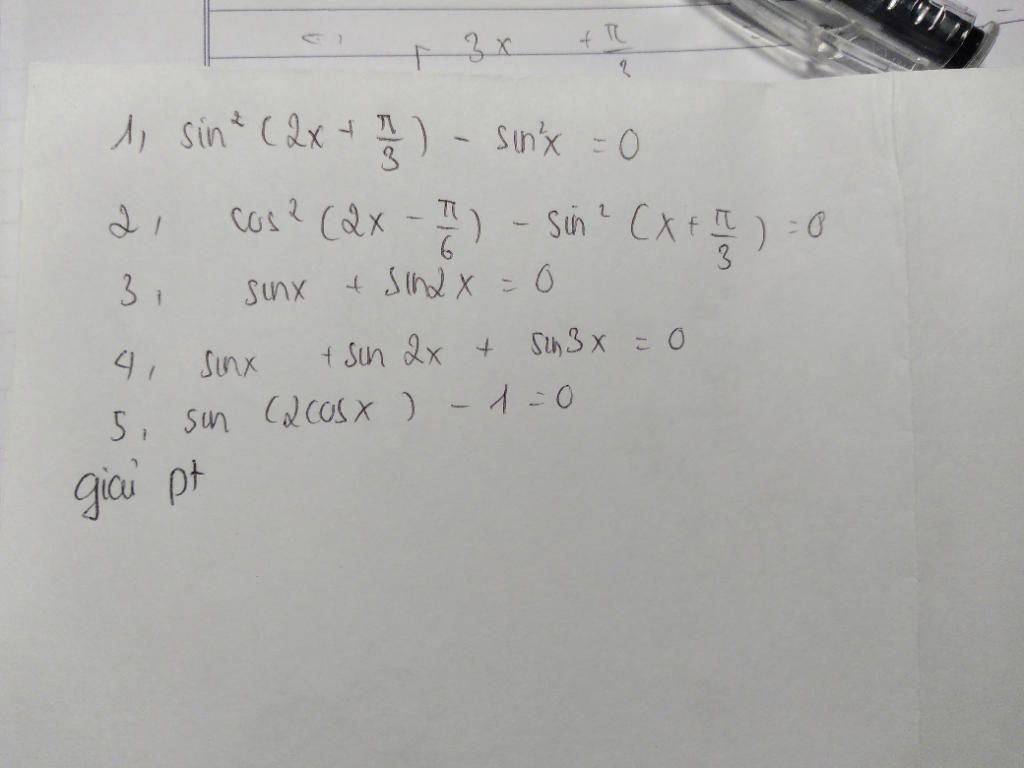 3x + π/2
1, sin² (2x + π/3) - sin²x = 0
2, cos² (2x - π/6) - sin² (x + π/3) = 0
3, sinx + sin2x = 0
4, sinx + sin 2x + sin3x = 0
5, sin (2cosx) - 1 = 0
giải pt